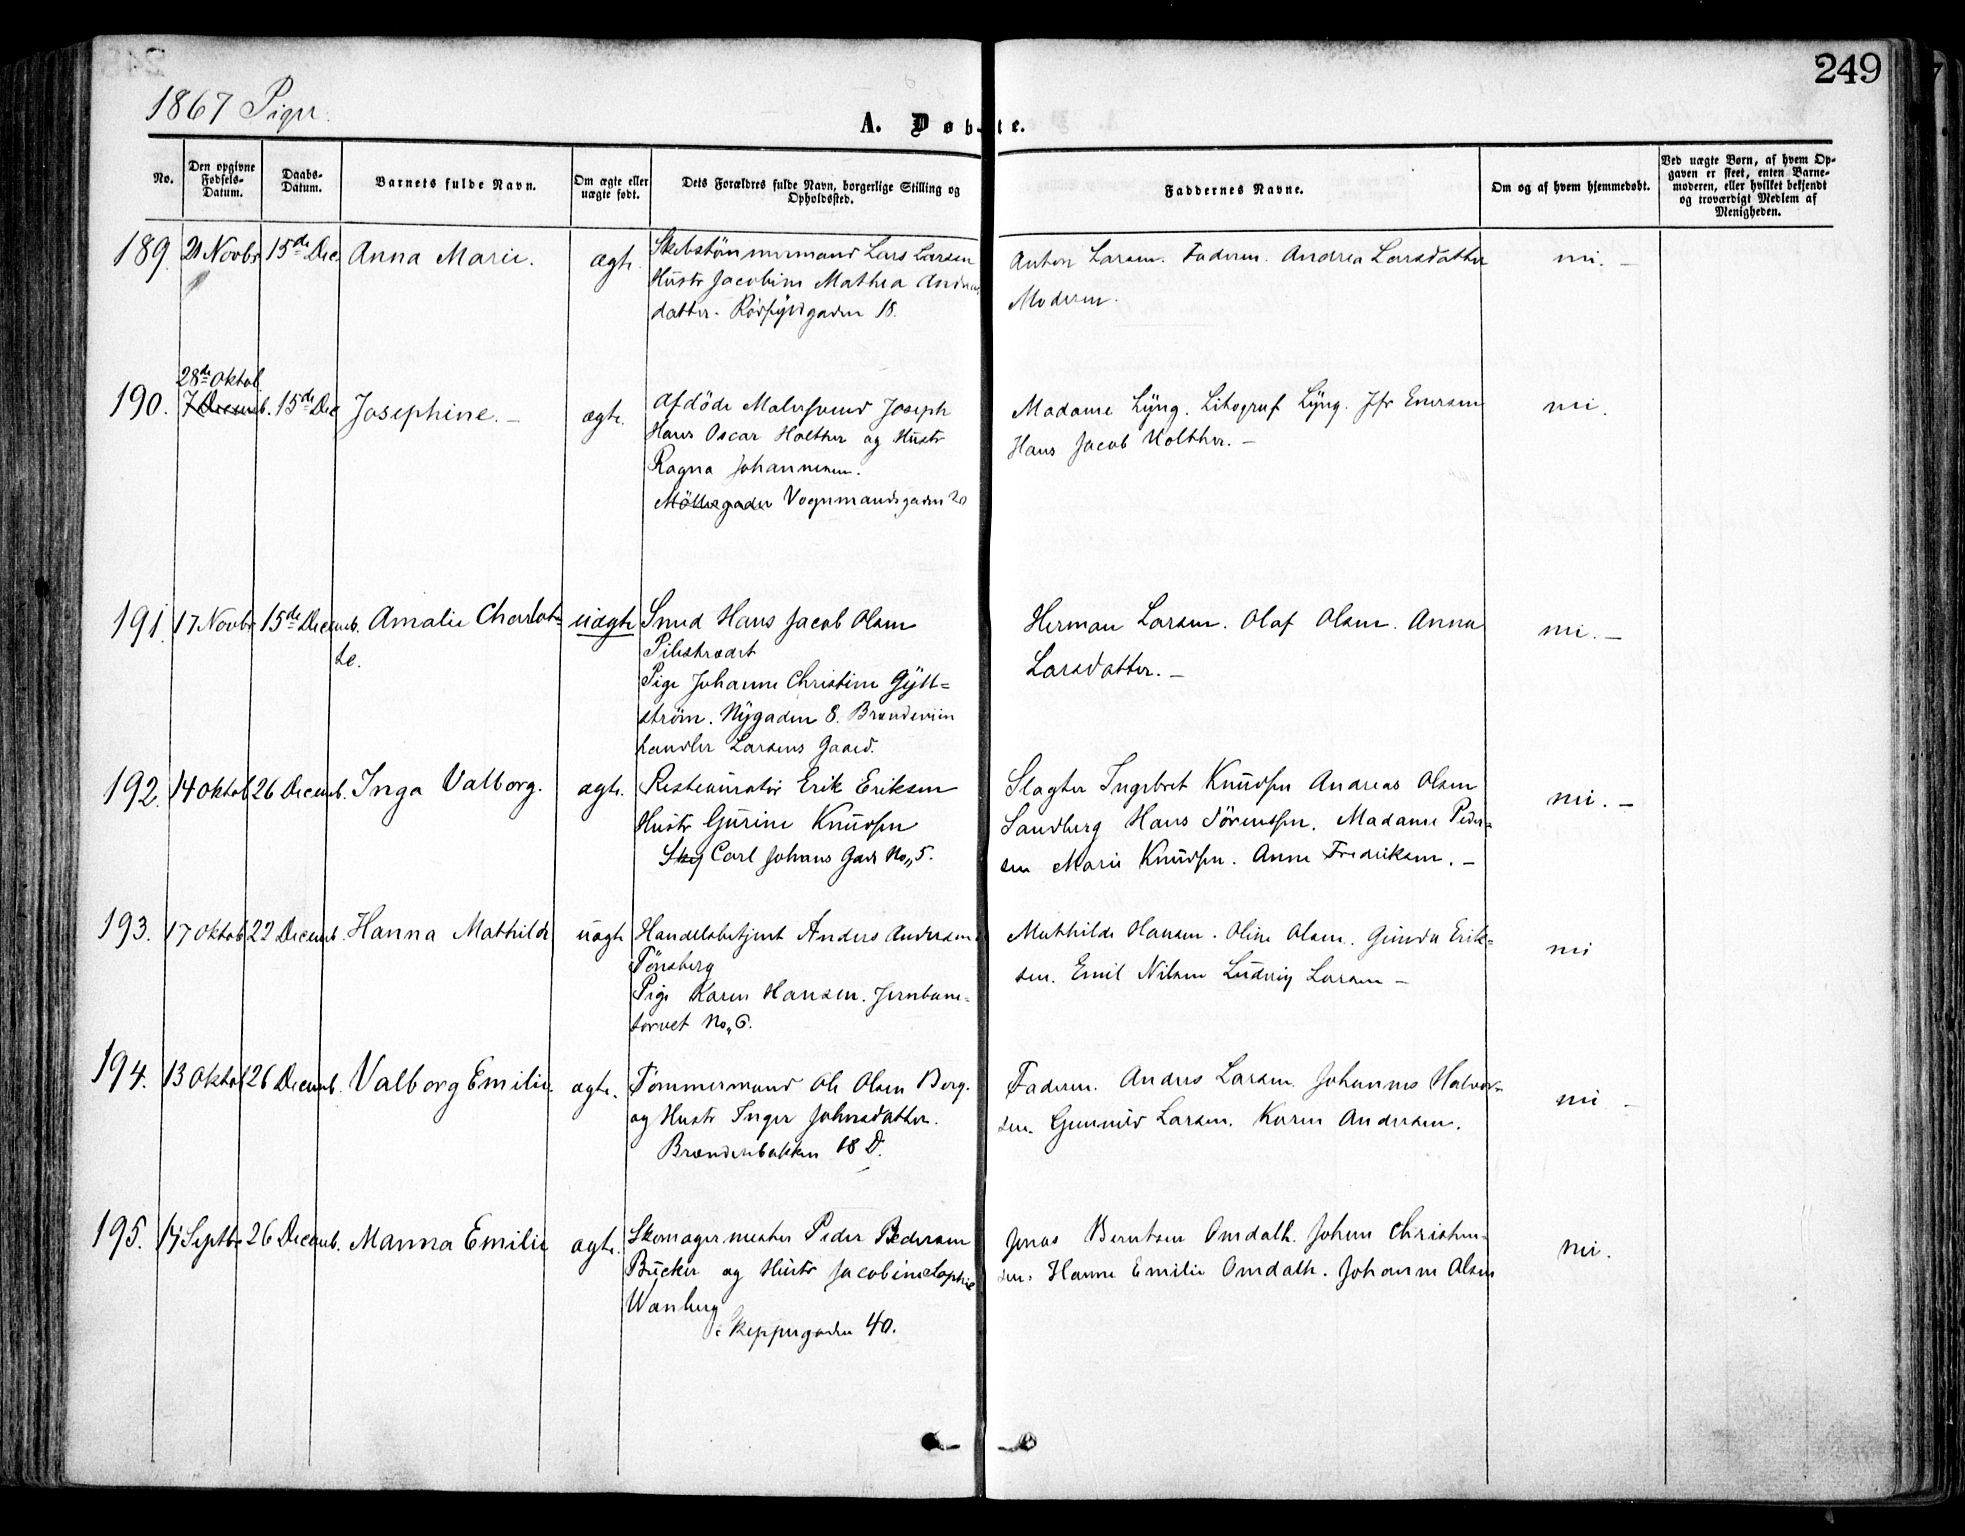 249
1867 Piger.
A. Døbte.
No.
Den opgivne Fødsels-Datum.
Daabs-Datum.
Barnets fulde Navn.
Om ægte eller uægte født.
Dets Forældres fulde Navn, borgerlige Stilling og Opholdssted.
Faddernes Navne.
Om og af hvem hjemmedøbt.
Ved uægte Børn, af hvem Opgaven er skeet, enten Barnemoderen, eller hvilket bekjendt og troværdigt Medlem af Menigheden.
189. 21 Novbr 15de Dec Anna Marie. ægte.
Skibstömmermand Lars Larsen
Hustr Jacobine Mathea Andreas
datter. 18.
Anton Larsen. Faderen. Andrea Larsdatter
Moderen.
nei. –
28de Oktob.
190. 7 Decemb. 15de Dec Josephine. – ægte.
Afdöde Malersvend Joseph
Hans Oscar Holther og Hustr
Ragna Johannesen.
Möllergaden Vognmandsgaden 20
Madame Lÿng. Litograf Lÿng. Jfr Enersen
Hans Jacob Holther. –
nei.
191. 17 Novbr 15de Decemb. Amalie Charlot-
te.
uægte
Smed Hans Jacob Olsen
Pilestrædet
Pige Johanne Christine Gÿll=
ström. Nÿgaden 8. Brændeviin
handler Larsens Gaard.
Herman Larsen. Olaf Olsen. Anna
Larsdatter. –
nei. –
192. 14 Oktob 26 Decemb. Inga Valborg. ægte.
Restauratör Erik Eriksen
Hustr Gurine Knudsen
Carl Johans Gade No 5.
Slagter Ingebret Knudsen Andreas Olsen
Sandberg Hans Sörenssen. Madame Peder=
sen Marie Knudsen. Anne Fredriksen. –
nei. –
193. 17 Oktob 22 Decemb. Hanna Mathilde uægte
Handelsbetjent Anders Andersen
Tönsberg
Pige Karen Hansen. Jernbane=
torvet No 6.
Mathilde Hansen. Oline Olsen. Gunda Erik=
sen. Emil Nilsen Ludvig Larsen –
nei
194. 13 Oktob 26 Decemb. Valborg Emilie. ægte.
Tömmermand Ole Olsen Berg.
og Hustr Inger Johnsdatter.
Brænderibakken 18 D.
Faderen. Anders Larsen. Johannes Halvor=
sen. Gunnild Larsen. Karen Andersen.
nei –
195. 14 Septbr 26 Decemb. Manna Emilie ægte.
Skomagermester Peder Pedersen
Bücker og Hustr Jacobine Sophie
Wanberg
Skippergaden 40.
Jonas Berntsen Omdalh. Johan Christen-
sen. Hanne Emilie Omdalh. Johanne Olsen
nei.